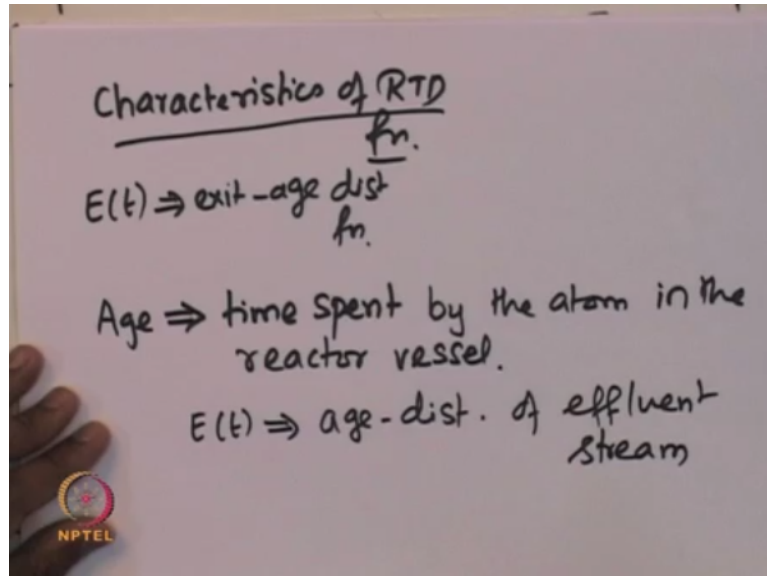 Characteristics of RTD
fn.
E(t) ⇒ exit-age dist
fn.
Age ⇒ time spent by the atom in the
reactor vessel.
E(t) ⇒ age-dist. of effluent
stream
NPTEL